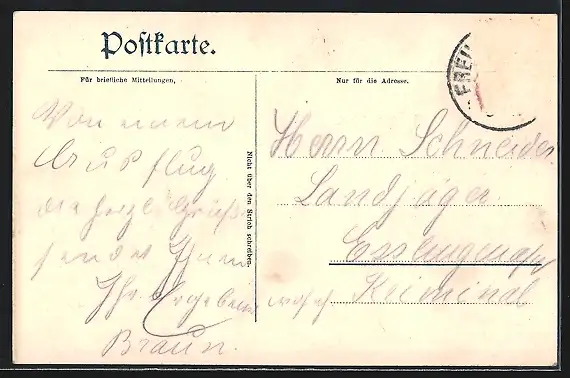 Postkarte.
Für briefliche Mitteilungen,
Nur für die Adresse.
Nicht über den Strich schreiben.
FREI
Von einem
Ausflug
die herzl. Grüße
sendet Ihnen
Ihr Ergebener
Braun.
Herrn Schneider
Landjäger
Esslingen
Kriminal